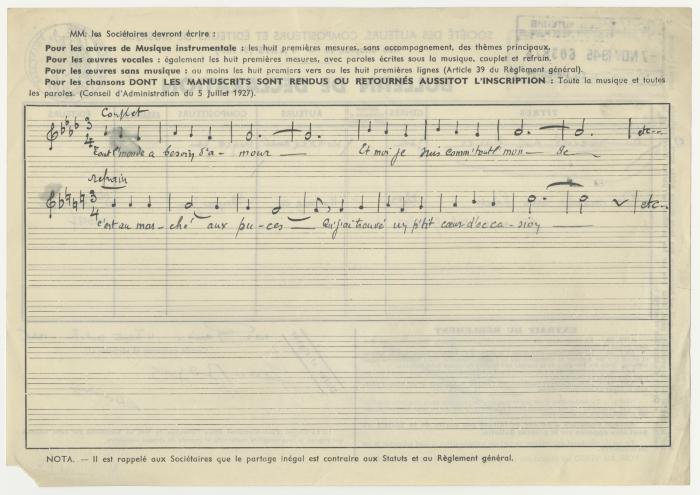 MM. les Sociétaires devront écrire :
Pour les œuvres de Musique instrumentale : les huit premières mesures, sans accompagnement, des thèmes principaux.
Pour les œuvres vocales : également les huit premières mesures, avec paroles écrites sous la musique, couplet et refrain.
Pour les œuvres sans musique : au moins les huit premiers vers ou les huit premières lignes (Article 39 du Règlement général).
Pour les chansons DONT LES MANUSCRITS SONT RENDUS OU RETOURNÉS AUSSITOT L'INSCRIPTION : Toute la musique et toutes
les paroles. (Conseil d'Administration du 5 Juillet 1927).
Couplet
3 4 etc..
Tout l'monde a besoin d'a - mour Et moi je suis comm' tout l' mon - de
refrain
3 4 etc..
c'est au mar - ché aux pu - ces Qu' j'ai trouvé un p'tit cœur d'occa - sion
NOTA. — Il est rappelé aux Sociétaires que le partage inégal est contraire aux Statuts et au Règlement général.